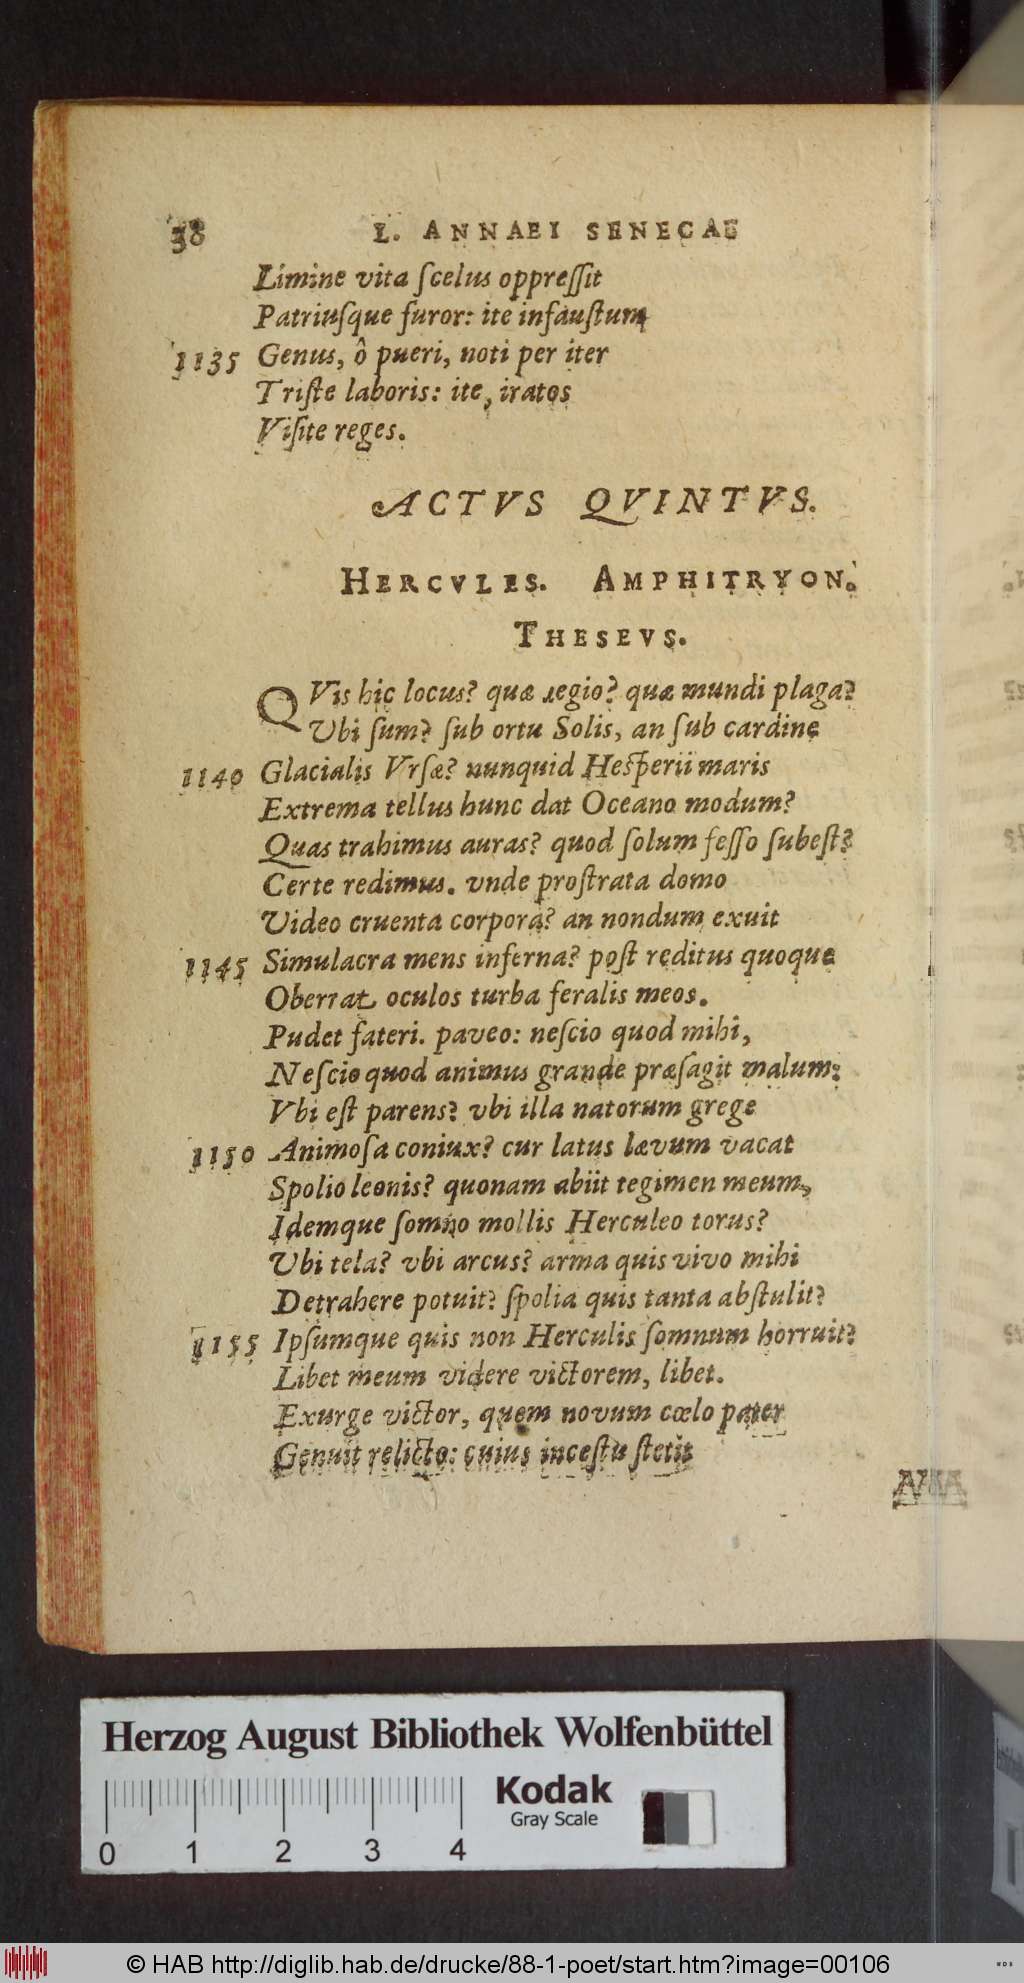 38 L. ANNAEI SENECAE
Limine vita ſcelus oppreſſit
Patriuſque furor: ite infauſtum
1135 Genus, ô pueri, noti per iter
Triſte laboris: ite, iratos
Viſite reges.
ACTVS QVINTVS.
HERCVLES. AMPHITRYON.
THESEVS.
QVis hic locus? quæ regio? quæ mundi plaga?
Ubi ſum? ſub ortu Solis, an ſub cardine
1140 Glacialis Vrſæ? nunquid Heſperii maris
Extrema tellus hunc dat Oceano modum?
Quas trahimus auras? quod ſolum feſſo ſubeſt?
Certe redimus. vnde proſtrata domo
Video cruenta corpora? an nondum exuit
1145 Simulacra mens inferna? poſt reditus quoque
Oberrat oculos turba feralis meos.
Pudet fateri. paveo: neſcio quod mihi,
Neſcio quod animus grande præſagit malum:
Vbi eſt parens? vbi illa natorum grege
1150 Animoſa coniux? cur latus lævum vacat
Spolio leonis? quonam abiit tegimen meum,
Idemque ſomno mollis Herculeo torus?
Ubi tela? vbi arcus? arma quis vivo mihi
Detrahere potuit? ſpolia quis tanta abſtulit?
1155 Ipſumque quis non Herculis ſomnum horruit?
Libet meum videre victorem, libet.
Exurge victor, quem novum cœlo pater
Genuit relicto: cuius inceſtu ſtetit
Herzog August Bibliothek Wolfenbüttel
Kodak
Gray Scale
0 1 2 3 4
© HAB http://diglib.hab.de/drucke/88-1-poet/start.htm?image=00106